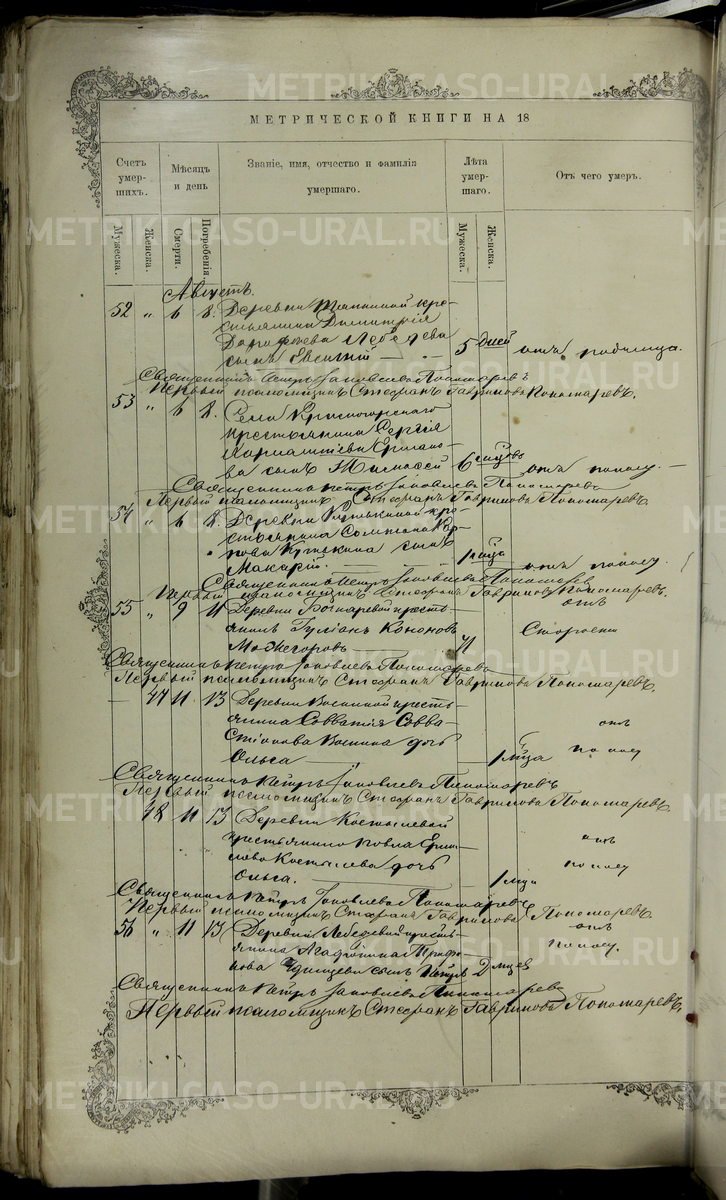 METRIKI.GASO-URAL.RU
МЕТРИЧЕСКОЙ КНИГИ НА 18
Счетъ умер-шихъ.
Мѣсяцъ и день
Званіе, имя, отчество и фамилія умершаго.
Лѣта умер-шаго.
Отъ чего умеръ.
Мужеска.
Женска.
Смерти.
Погребенія.
Мужеска.
Женска.
Августъ.
52 „ 6 8. Деревни кре-
стьянина Димитрія
Дорофеева Лебедева
сынъ Евсигній — 5 дней отъ родимца.
Священникъ Петръ Іаковлевъ Пономаревъ
Первый псаломщикъ Стефанъ Гавриловъ Пономаревъ.
53 „ 6 8. Села Красногорскаго
крестьянина Сергія
Ермако-
ва сынъ Тимофей 6 мцовъ отъ поносу. —
Священникъ Петръ Іаковлевъ Пономаревъ
Первый псаломщикъ Стефанъ Гавриловъ Пономаревъ.
54 „ 6 8. Деревни кре-
стьянина Кар-
пова сынъ
Макарій. 1 мца отъ поносу.
Священникъ Петръ Іаковлевъ Пономаревъ
Первый псаломщикъ Стефанъ Гавриловъ Пономаревъ.
55 „ 9 11 Деревни Бочкаревой кресть-
янинъ Іуліанъ Кононовъ
Можегоровъ 71 отъ
Старости
Священникъ Петръ Іаковлевъ Пономаревъ
Первый псаломщикъ Стефанъ Гавриловъ Пономаревъ.
— 47 11 13 Деревни Воининой кресть-
янина Савватія Савва-
стіанова Воинина дочь
Ольга — 1 мца отъ
поносу
Священникъ Петръ Іаковлевъ Пономаревъ
Первый псаломщикъ Стефанъ Гавриловъ Пономаревъ
48 11 13 Деревни Костылевой
крестьянина Павла
Костылева дочь
Ольга. — 1 мца отъ
поносу
Священникъ Петръ Іаковлевъ Пономаревъ
Первый псаломщикъ Стефанъ Гавриловъ Пономаревъ.
56 „ 11 13. Деревни Лебедевой кресть-
янина Агафоника Трифо-
нова сынъ Петръ 2 мцев отъ
поносу.
Священникъ Петръ Іаковлевъ Пономаревъ
Первый псаломщикъ Стефанъ Гавриловъ Пономаревъ.